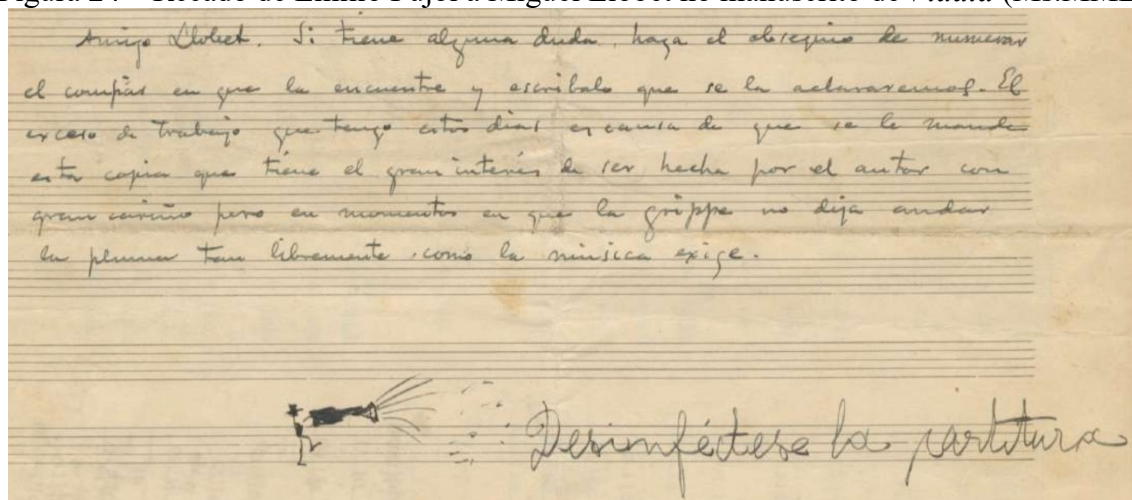 Figura 24 – Recado de Emilio Pujol a Miguel Llobet no manuscrito de
Amigo Llobet. Si tiene alguna duda, haga el obsequio de numerar
el compás en que la encuentre y escríbalo que se la aclararemos. El
exceso de trabajo que tengo estos dias es causa de que se le mande
esta copia que tiene el gran interés de ser hecha por el autor con
gran cariño pero en momentos en que la grippe no deja andar
la pluma tan libremente como la música exige.
Desinféctese la partitura